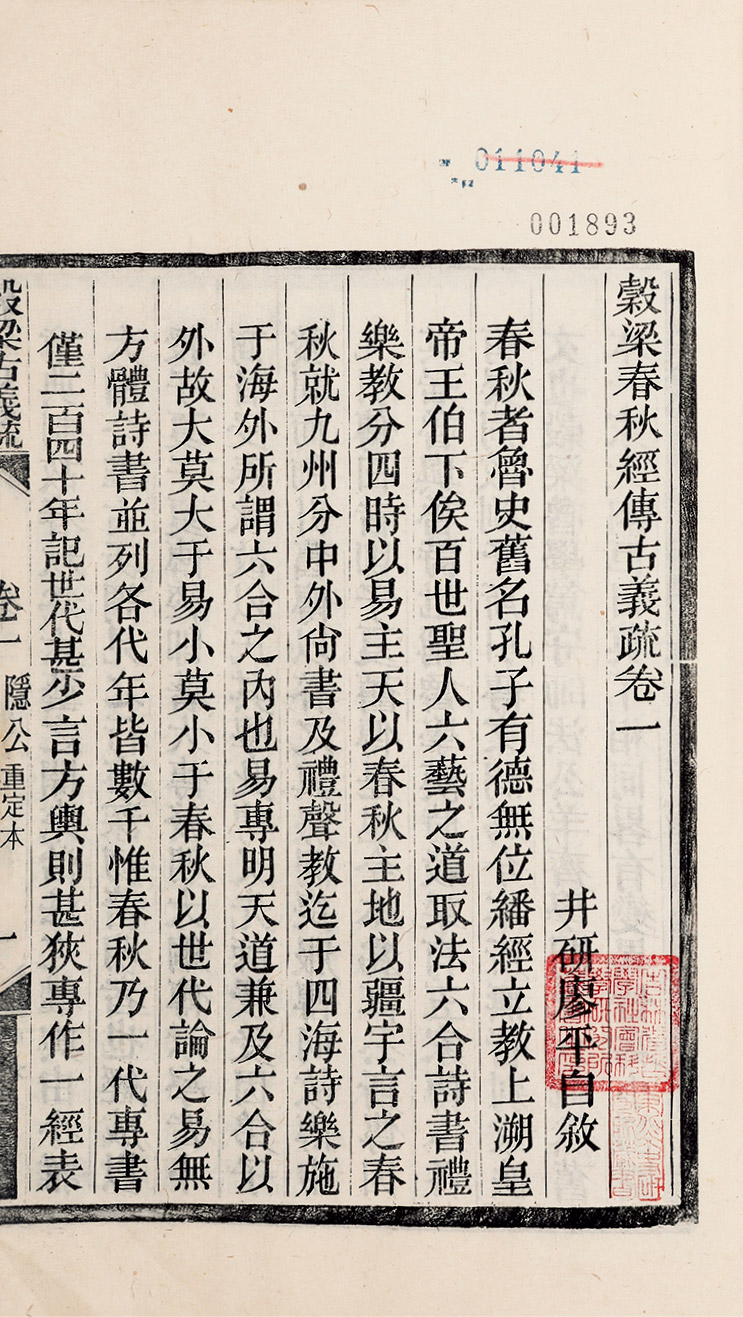 011041
001893
穀梁春秋經傳古義疏卷一
井研廖平自敘
春秋者魯史舊名孔子有德無位繙經立教上溯皇
帝王伯下俟百世聖人六藝之道取法六合詩書禮
樂教分四時以易主天以春秋主地以疆宇言之春
秋就九州分中外尙書及禮聲教迄于四海詩樂施
于海外所謂六合之內也易專明天道兼及六合以
外故大莫大于易小莫小于春秋以世代論之易無
方體詩書並列各代年皆數千惟春秋乃一代專書
僅二百四十年記世代甚少言方輿則甚狹專作一經表
穀梁古義疏
卷一
隱公
重定本
一